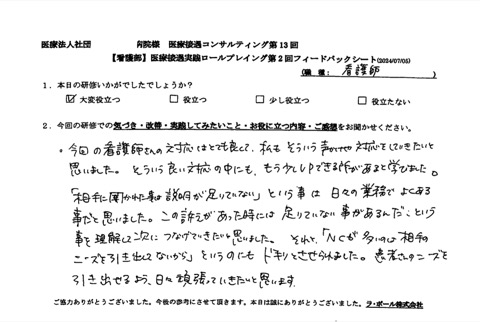 医療法人社団 病院様 医療接遇コンサルティング第13回
【看護部】医療接遇実践ロールプレイング第2回フィードバックシート(2024/07/05)
(職種: 看護師)
1．本日の研修いかがでしたでしょうか？
☑大変役立つ □役立つ □少し役立つ □役立たない
2．今回の研修での気づき・改善・実践してみたいこと・お役に立つ内容・ご感想をお聞かせください。
。今回の看護師さんの対応はとても良くて、私もそういう声かけや対応をしていきたいと
思いました。そういう良い対応の中にも、もう少しUPできる所があると学びました。
「相手に聞かれた事は説明が足りていない」という事は日々の業務でよくある
事だと思いました。この訴えがあった時には足りていない事があるんだ、という
事を理解して次につなげていきたいと思いました。それと、「NCが多いのは相手の
ニーズを引き出してないから」というのにもドキリとさせられました。患者さんのニーズを
引き出せるよう、日々頑張っていきたいと思います。
ご協力ありがとうございました。今後の参考にさせて頂きます。本日は誠にありがとうございました。ラ・ポール株式会社